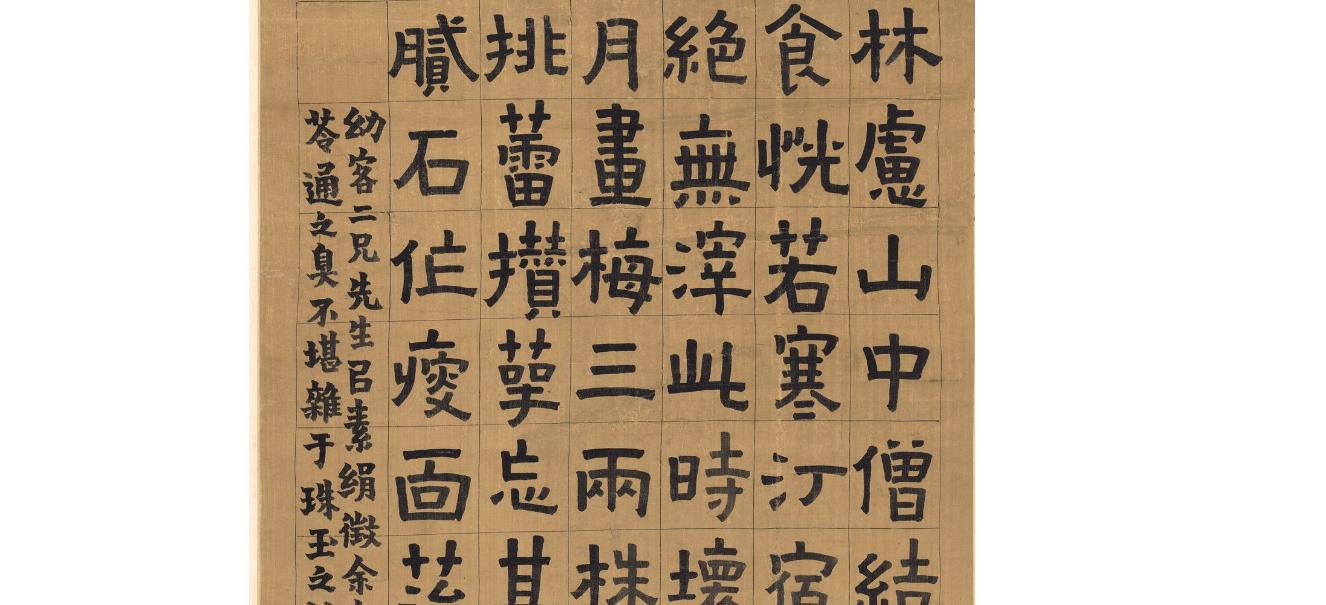 林慮山中僧結
食恍若寒汀宿
絕無滓此時壞
月畫梅三兩株
挑蕾攢萼忘甘
膩石作瘦面
幼客二兄先生㠯素絹徵余
苓通之臭不堪雜于珠玉之